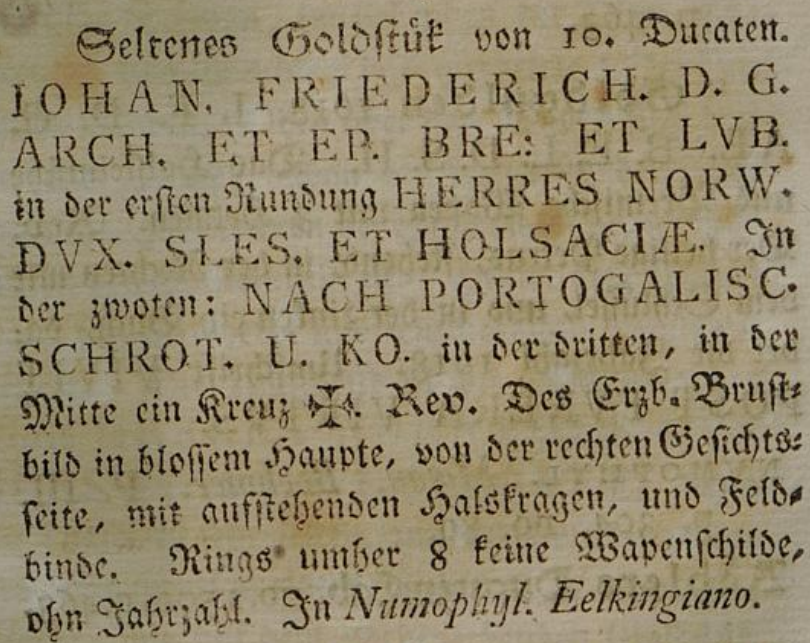 Seltenes Goldstük von 10. Ducaten.
IOHAN. FRIEDERICH. D. G.
ARCH. ET EP. BRE: ET LVB.
in der ersten Rundung HERRES NORW.
DVX. SLES. ET HOLSACIÆ. In
der zwoten: NACH PORTOGALISC.
SCHROT. U. KO. in der dritten, in der
Mitte ein Kreuz ✠. Rev. Des Erzb. Brust-
bild in blossem Haupte, von der rechten Gesichts-
seite, mit aufstehenden Halskragen, und Feld-
binde. Rings umher 8 keine Wapenschilde,
ohn Jahrzahl. In Numophyl. Eelkingiano.